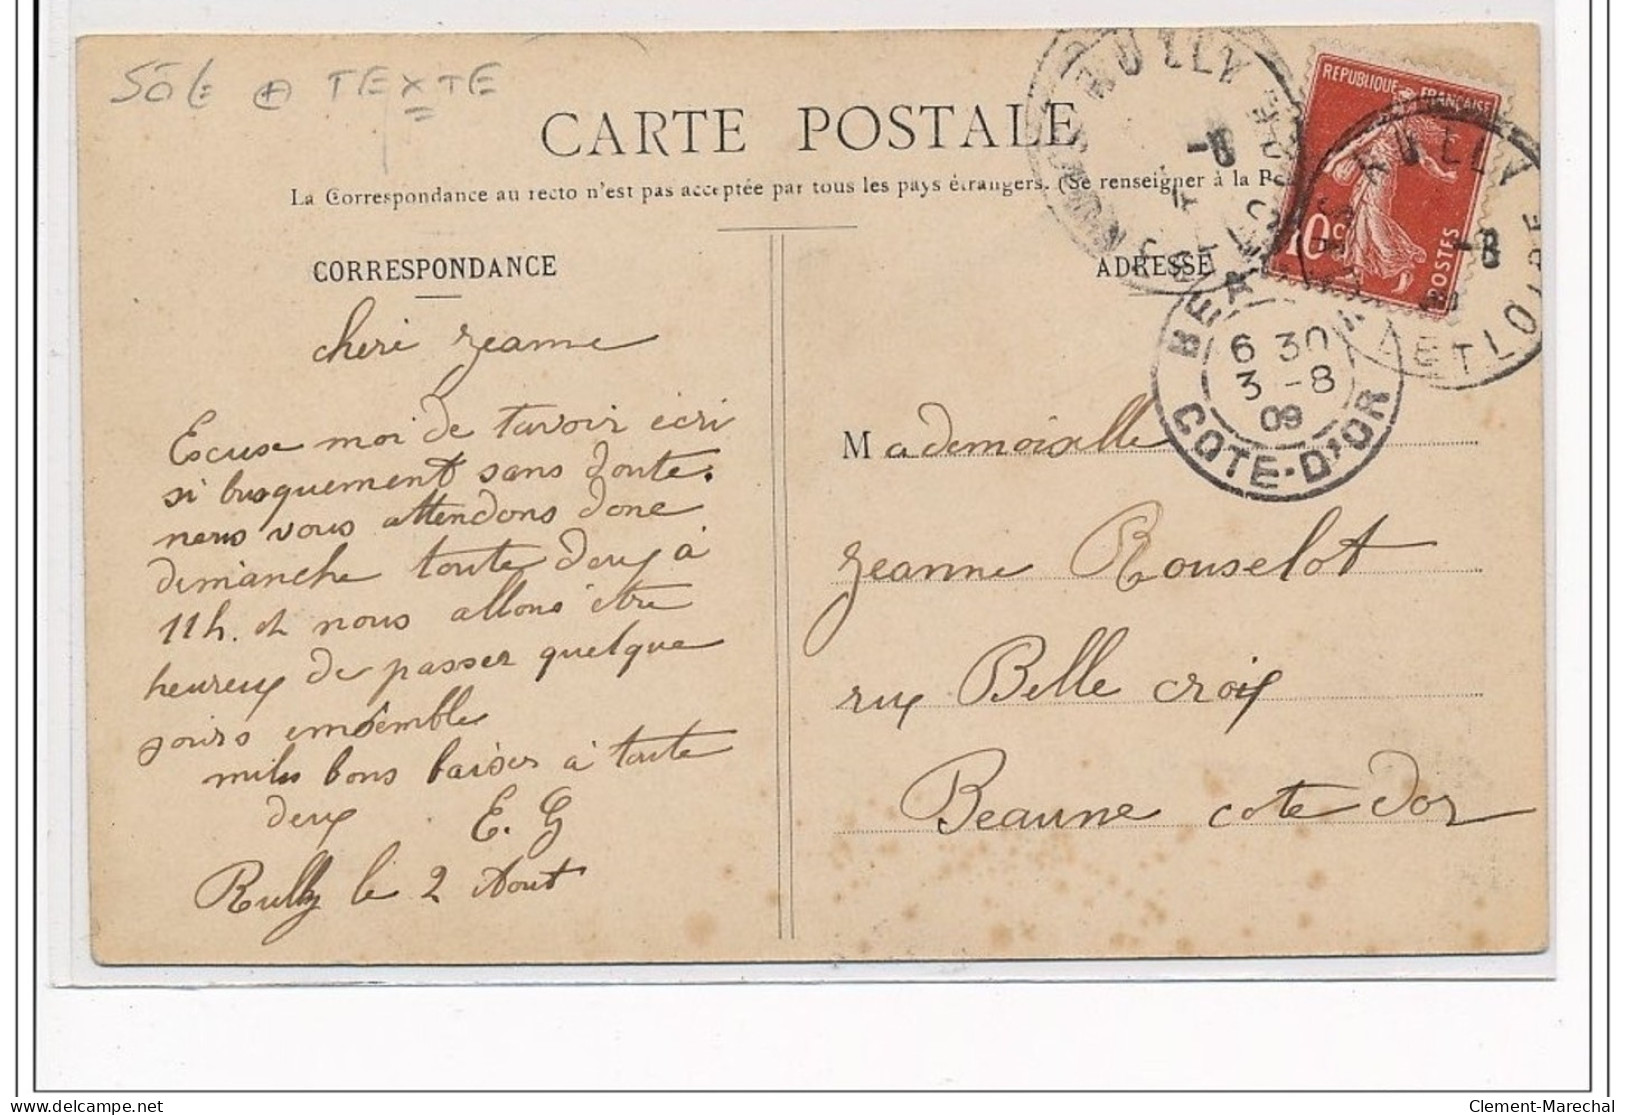 TEXTE
CARTE POSTALE
La Correspondance au recto n'est pas acceptée par tous les pays étrangers. (Se renseigner à la P
CORRESPONDANCE
cheri Jeanne
Escuse moi de tavoir écri
si brusquement sans doute.
nous vous attendons donc
dimanche toute deux à
11h. et nous allons être
heureux de passer quelque
jours emsemble
mile bons baiser à toute
deux
E. G
Rully le 2 Aout
ADRESSE
Mademoiselle
Jeanne Rouselot
rux Belle croix
Beaune cote dor
REPUBLIQUE FRANÇAISE
10c
POSTES
RULLY
-8
RULLY
-8
ET LOIRE
BEAUNE
6 30
3 -8
09
COTE-D'OR
delcampe.net
Clement-Marechal